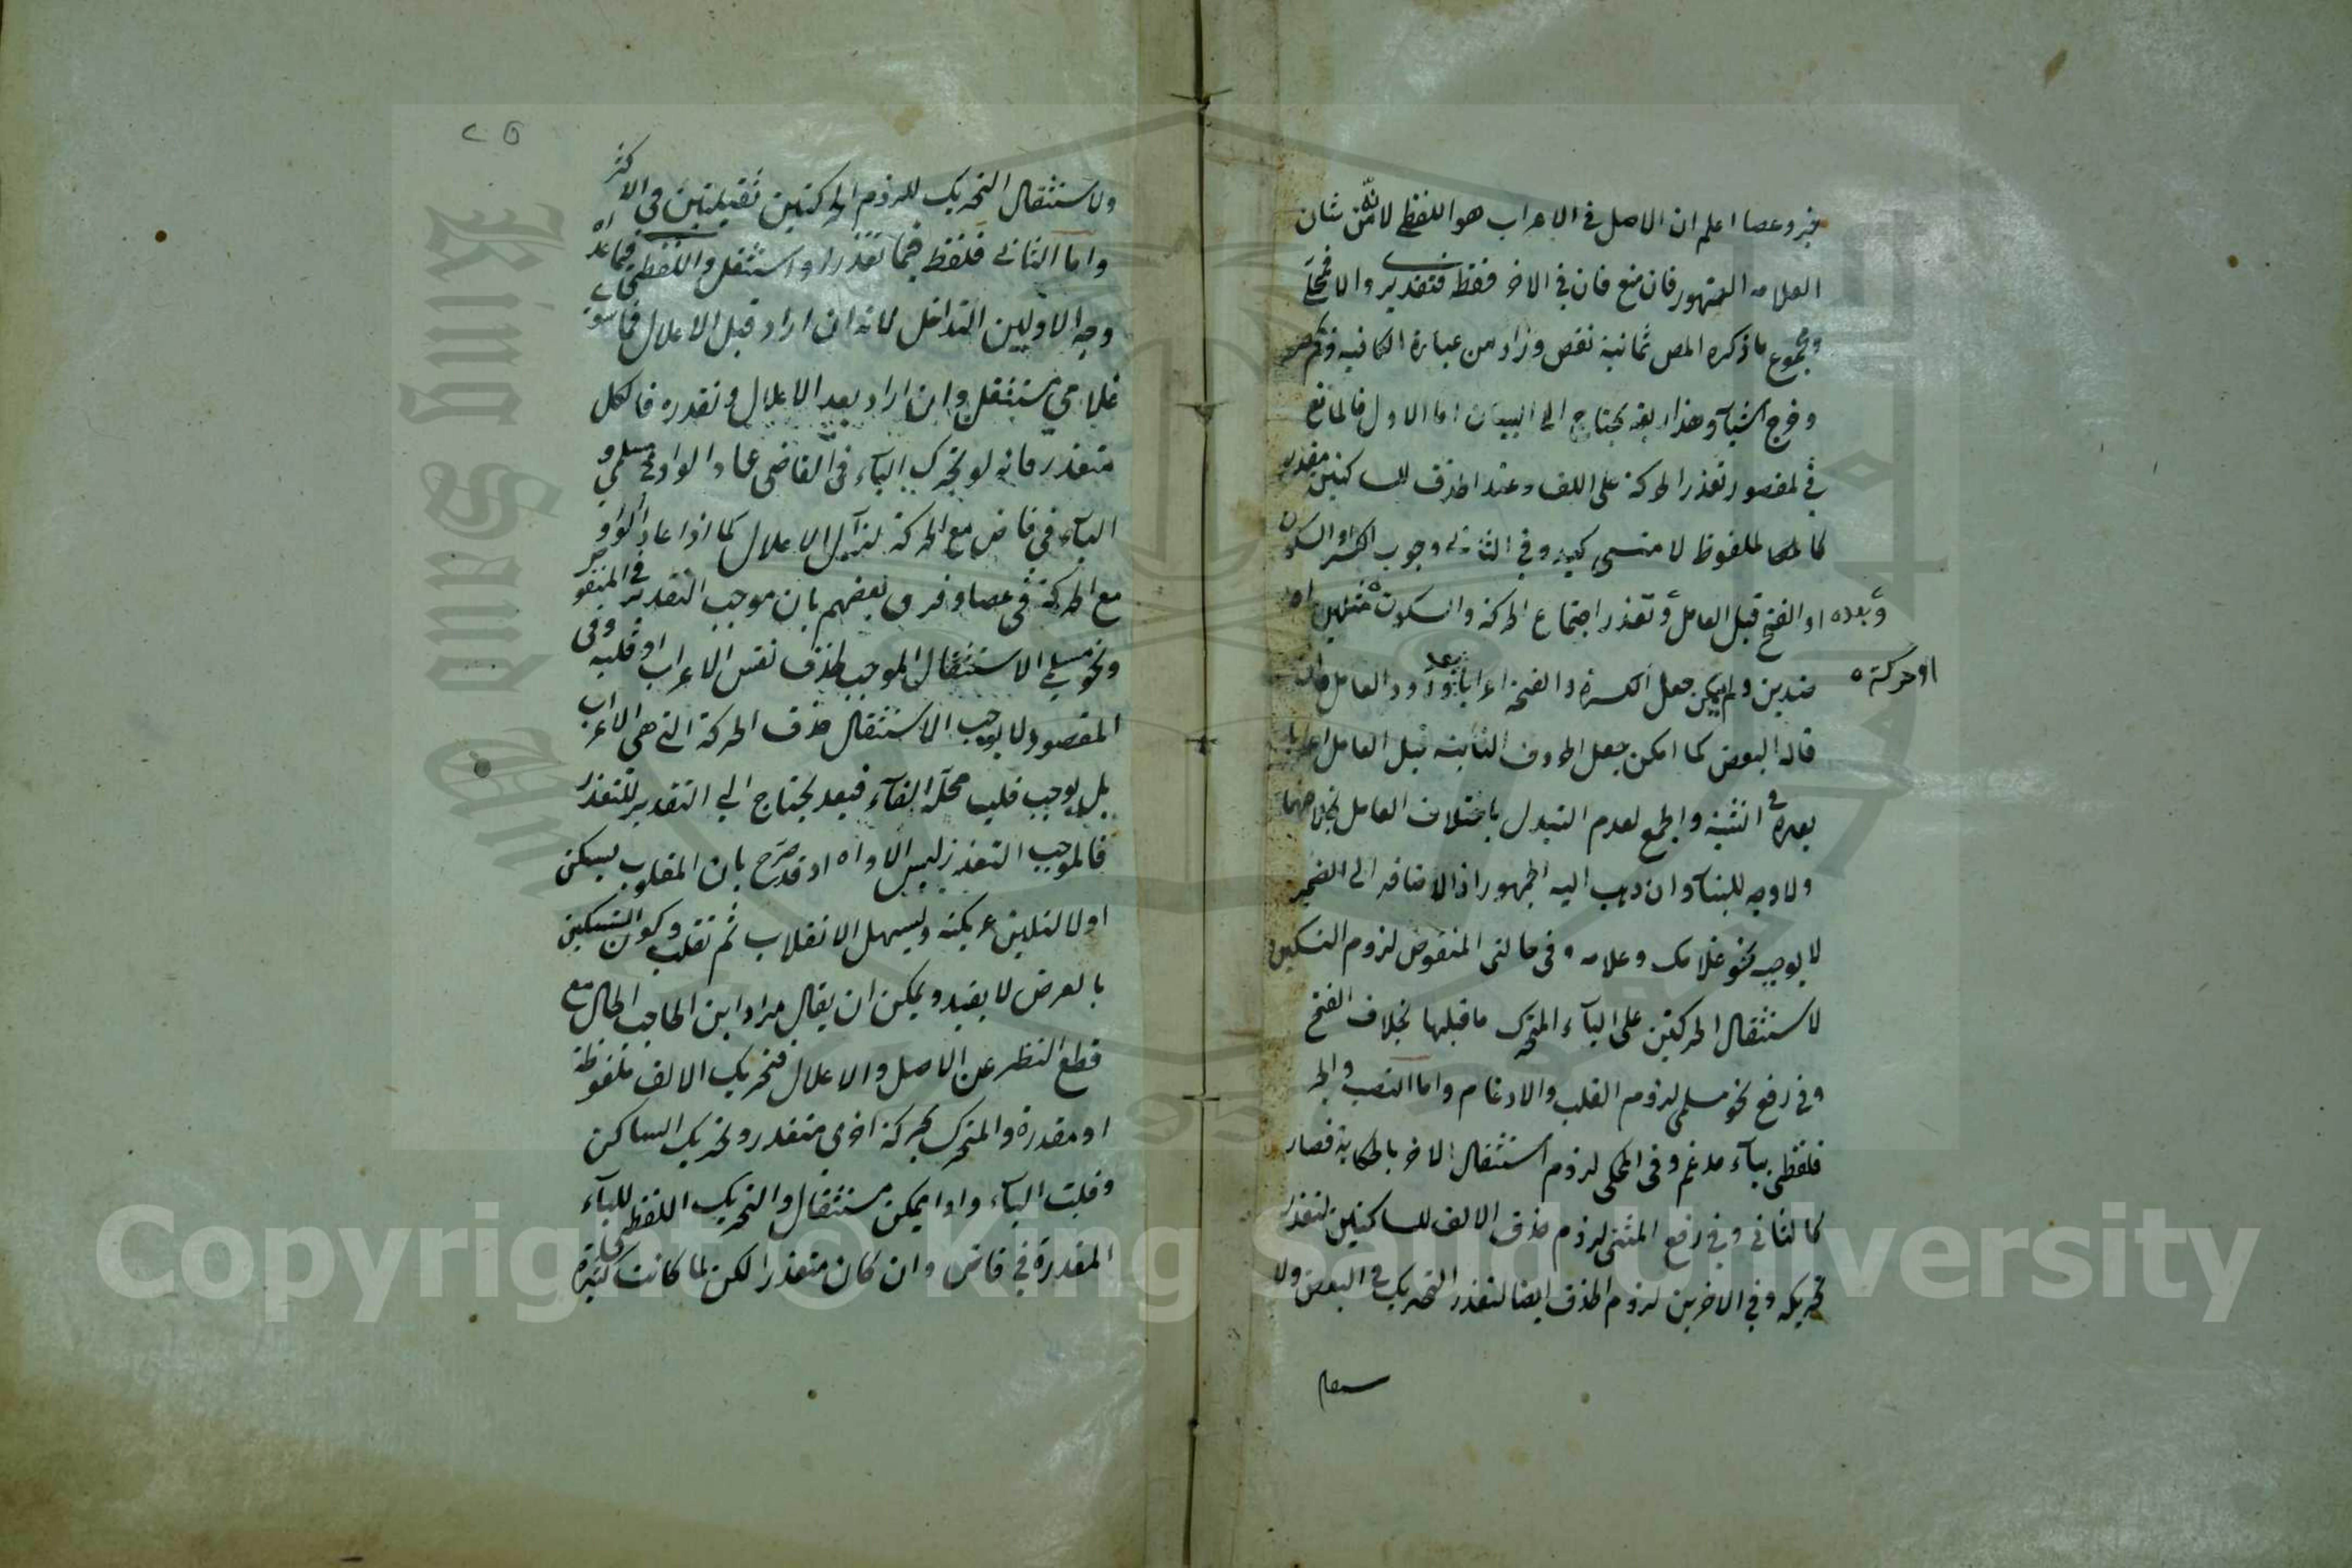 خبر وعصا اعلم ان الاصل في الاعراب هو اللفظي لانه من شان
العلامه الظهور فان منع فان في الاخر فقط فتقديري والا فمحلي
ومجموع ما ذكره المص ثمانية نقص وزاد من عبارة الكافيه
وخرج اشياء وهذا بقه يحتاج الى البيان اما الاول فالمانع
في لمقصور تعذر الحركة على الالف وعند الحذف للساكنين مقدر
كالملفوظ لا منسي كيد وفي الثاني وجوب الكسر او السكون
وبعده او الفتح قبل العامل و تعذر اجتماع الحركة والسكون مثلين اه
او حركته ضدين ولم يمكن جعل الكسرة والفتحة اعرابا بعد ورود العامل
قاله البعض كما امكن جعل الحروف الثابتة قبل العامل اعرابا
بعده في التثنية والجمع لعدم التبدل باختلاف العامل بخلافهما
ولا وجه للبناء وان ذهب اليه الجمهور اذ الاضافه الى الضمير
لا يوجبه نحو غلامك وغلامه وفي حالتي المنقوض لزوم التسكين
لاستثقال الحركتين على الياء المتحرك ما قبلها بخلاف الفتح
وفي رفع نحو مسلمي لزوم القلب والادغام واما النصب والجر
فلفظي بياء مدغم وفي المحكي لزوم استثقال الاخر بالحكاية فصار
كالثاني وفي رفع المثنى لزوم حذف الالف للساكنين لتعذر
تحريكه وفي الاخرين لزوم الحذف ايضا لتعذر التحريك في البعض ولا
٢٥
ولاستثقال التحريك للزوم الحركتين ثقيلتين في الاكثر
واما الثاني فلفظ فيما تعذر او استثقل واللفظي فيما عداه
وجه الاولين التداخل لانه ان اراد قبل الاعلال فما سوى
غلامي مستثقل وان اراد بعد الاعلال وتقدره فالكل
متعذر فانه لو تحرك الياء في القاضي عاد الواو في مسلمي و
الياء في قاض مع الحركة لزال الاعلال كما اذا عاد الواو
مع الحركة في عصا وفرق بعضهم بان موجب التقدير في المنقو
ونحو مسلمي الاستثقال الموجب لحذف نفس الاعراب او قلبه وفي
المقصور لا يوجب الاستثقال حذف الحركة التي هي الاعراب
بل يوجب قلب محله الفاء فبعد يحتاج الى التقدير للتعذر
فالموجب التعذر ليس الا واه اد قد صرح بان المقلوب يسكن
اولا لتلين عريكته ويسهل الانقلاب ثم تقلب وكون التسكين
بالعرض لا يفيد ويمكن ان يقال مراد ابن الحاجب الحال مع
قطع النظر عن الاصل والاعلال فتحريك الالف ملفوظة
او مقدرة والمتحرك بحركة اخرى متعذر وتحريك الساكن
وقلبت الياء واوا يمكن مستثقل والتحريك اللفظي للياء
المقدرة في قاض وان كان متعذرا لكن لما كانت كثيرة
Copyright © King Saud University
King Saud University
1957